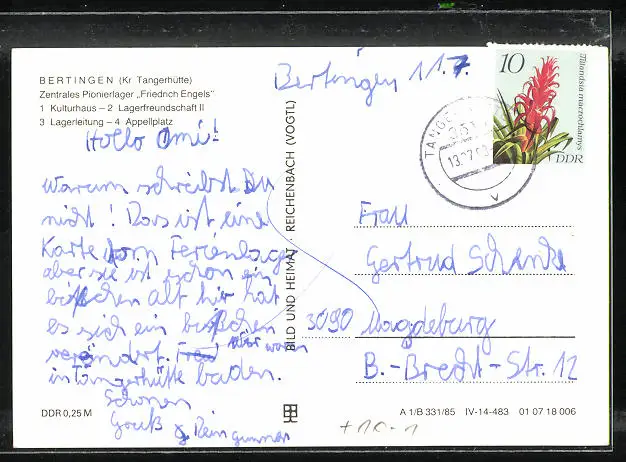 BERTINGEN (Kr Tangerhütte)
Zentrales Pionierlager „Friedrich Engels"
1 Kulturhaus – 2 Lagerfreundschaft II
3 Lagerleitung – 4 Appellplatz
Bertingen 11.7.
Hallo Omi!
Warum schreibst Du
nicht! Das ist eine
Karte vom Ferienlager
aber sie ist schon ein
bißchen alt hir hat
es sich ein bißchen
verändert. Wir waren
in Tangerhütte baden.
Schönen
Gruß
DDR 0,25 M
BILD UND HEIMAT · REICHENBACH (VOGTL)
10
Tillandsia macrochlamys
DDR
TANGE
Frau
Gertrud
3090 Magdeburg
B.-Brecht-Str. 12
A 1/B 331/85 IV-14-483 01 07 18 006